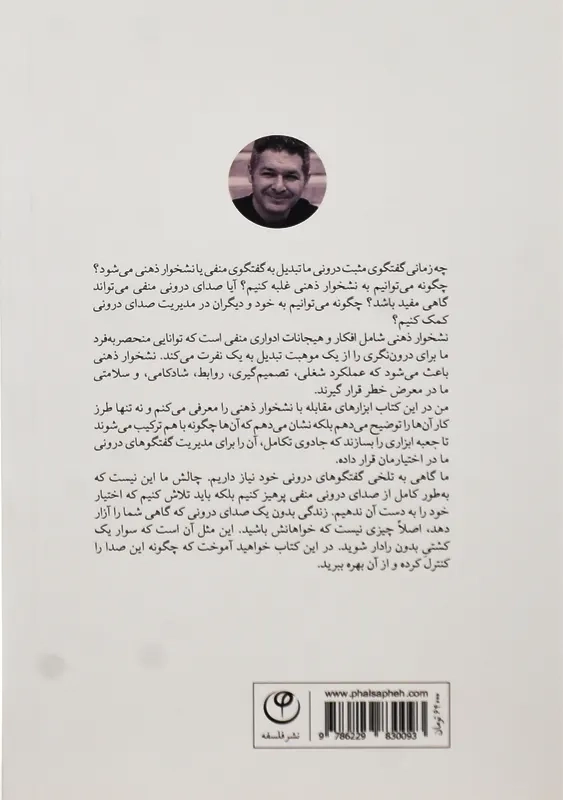 چه زمانی گفتگوی مثبت درونی ما تبدیل به گفتگوی منفی یا نشخوار ذهنی می‌شود؟
چگونه می‌توانیم به نشخوار ذهنی غلبه کنیم؟ آیا صدای درونی منفی می‌تواند
گاهی مفید باشد؟ چگونه می‌توانیم به خود و دیگران در مدیریت صدای درونی
کمک کنیم؟
نشخوار ذهنی شامل افکار و هیجانات ادواری منفی است که توانایی منحصربه‌فرد
ما برای درون‌نگری را از یک موهبت تبدیل به یک نفرت می‌کند. نشخوار ذهنی
باعث می‌شود که عملکرد شغلی، تصمیم‌گیری، روابط، شادکامی، و سلامتی
ما در معرض خطر قرار گیرند.
من در این کتاب ابزارهای مقابله با نشخوار ذهنی را معرفی می‌کنم و نه تنها طرز
کار آن‌ها را توضیح می‌دهم بلکه نشان می‌دهم که آن‌ها چگونه با هم ترکیب می‌شوند
تا جعبه ابزاری را بسازند که جادوی تکامل، آن را برای مدیریت گفتگوهای درونی
ما در اختیارمان قرار داده.
ما گاهی به تلخی گفتگوهای درونی خود نیاز داریم. چالش ما این نیست که
به‌طور کامل از صدای درونی منفی پرهیز کنیم بلکه باید تلاش کنیم که اختیار
خود را به دست آن ندهیم. زندگی بدون یک صدای درونی که گاهی شما را آزار
دهد، اصلاً چیزی نیست که خواهانش باشید. این مثل آن است که سوار یک
کشتیِ بدون رادار شوید. در این کتاب خواهید آموخت که چگونه این صدا را
کنترل کرده و از آن بهره ببرید.
www.phalsapheh.com
9 786229 830093
۶۴۰۰۰ تومان
نشر فلسفه